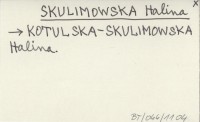 SKULIMOWSKA Halina x
→ KOTULSKA-SKULIMOWSKA
Halina.
BT/044/1104